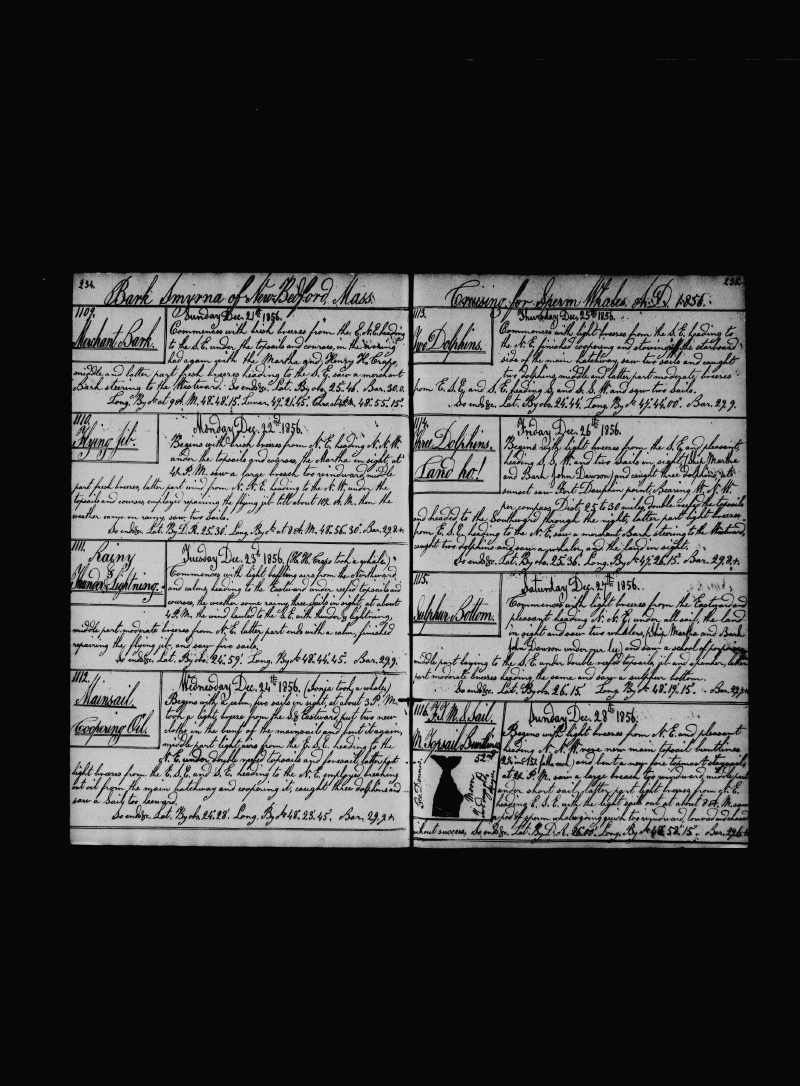 234.
Bark Smyrna of New Bedford, Mass.
1109.
Merchant Bark.
Sunday Dec. 21st 1856.
Commences with fresh breezes from the E.N.E. heading
to the S.E. under the topsails and courses, in the evening
had again with the Martha and Henry H. Crapo
middle and latter part fresh breezes heading to the S.E. saw a merchant
Bark steering to the Westward. So ends &c. Lat. By obs. 25.46. Bar. 30.0.
Long. By at 9 A.M. 48.48.15. Lunar. 47.21.45. 48.55.15.
1110.
Flying jib.
Monday Dec. 22nd 1856.
Begins with fresh breezes from N.E. heading N.N.W.
under the topsails and courses, the Martha in sight, at
4 P.M. saw a large breach to windward, middle
part fresh breezes, latter part wind from N.N.E. heading to the N.W. under the
topsails and courses, employed repairing the flying jib till about 10 A.M. then the
weather came on rainy, saw two sails.
So ends &c. Lat. By D.R. 25.30. Long. By at 8 A.M. 48.56.30. Bar. 29.8
1111.
Rainy
&
Thunder & Lightning.
Tuesday Dec. 23d 1856. (H.H. Crapo took a whale)
Commences with light baffling airs from the Northward,
and calms, heading to the Eastward under reefed topsails and
courses, the weather some rainy, three sails in sight, at about
4 P.M. the wind hauled to the S.E. with thunder & lightning,
middle part moderate breezes from N.E. latter part ends with a calm, finished
repairing the flying jib, and saw five sails.
So ends &c. Lat. By obs. 24.59. Long. By 48.44.45. Bar. 29.9.
1112.
Mainsail.
Coopering Oil.
Wednesday Dec. 24th 1856. (Sonja took a whale)
Begins with a calm, five sails in sight, at about 3 P.M.
took a light breeze from the S & Eastward, put two new
cloths in the bunt of the mainsail and bent it again,
middle part light airs from the E.S.E. heading to the
N.E. under double reefed topsails and foresail, latter part
light breezes from the E.S.E. and S.E. heading to the N.E. employed breaking
out oil from the main hatchway and coopering it, caught three dolphins and
saw a sail to leeward.
So ends &c. Lat. By obs. 24.28. Long. By 48.23.45. Bar. 29.9
235.
Cruising for Sperm Whales. A.D. 1856.
1113.
Two Dolphins.
Thursday Dec. 25th 1856.
Commences with light breezes from the S.E. heading to
the N.E. finished coopering and stowing off the starboard
side of the main hatchway, saw two sails and caught
two dolphins, middle and latter part moderate breezes
from E.S.E. and S.E. heading S. and S.S.W. and saw two sails.
So ends &c. Lat. By obs. 24.44. Long. By 47.44.00. Bar. 29.9.
1114.
Three Dolphins.
Land ho!
Friday Dec. 26th 1856.
Begins with light breezes from the S.E. and pleasant,
heading S.S.W. and two sails in sight, (Ship Martha
and Bark John Dawson) and caught three dolphins, at
sunset saw Fort Dauphin point, bearing W.N.W.
per compass Dist. 25 to 30 miles, double reefed the topsails
and headed to the Southward through the night, latter part light breezes
from E.S.E. heading to the N.E. saw a merchant Bark steering to the Westward,
caught two dolphins and saw a whaler, and the land in sight.
So ends &c. Lat. By obs. 25.36. Long. By 47.26.15. Bar. 29.8
1115.
Sulphur Bottom.
Saturday Dec. 27th 1856.
Commences with light breezes from the Eastward and
pleasant, heading N.N.E. under all sail, the land
in sight and saw two whalers, (Ship Martha and Bark
John Dawson under our lee) and saw a school of porpoises
middle part laying to the S.E. under double reefed topsails, jib and spanker, latter
part moderate breezes heading the same and saw a sulphur bottom.
So ends &c. Lat. By obs. 26.15 Long. By 48.19.15. Bar. 29.9
1116.
M. Topsail Buntlines
Sunday Dec. 28th 1856.
Begins with light breezes from N.E. and pleasant
heading N.N.W. rove new main topsail buntlines
at P.M. saw a large breach to windward, middle part
under short sail, latter part light breezes from N.E.
heading E.S.E. with the light sails out, at about 8 A.M. saw
a pod of sperm whales going quick to windward, lowered and chased
without success. So ends &c. Lat. By D.R. 26.00. Long. By 48.58.15. Bar. 29.6